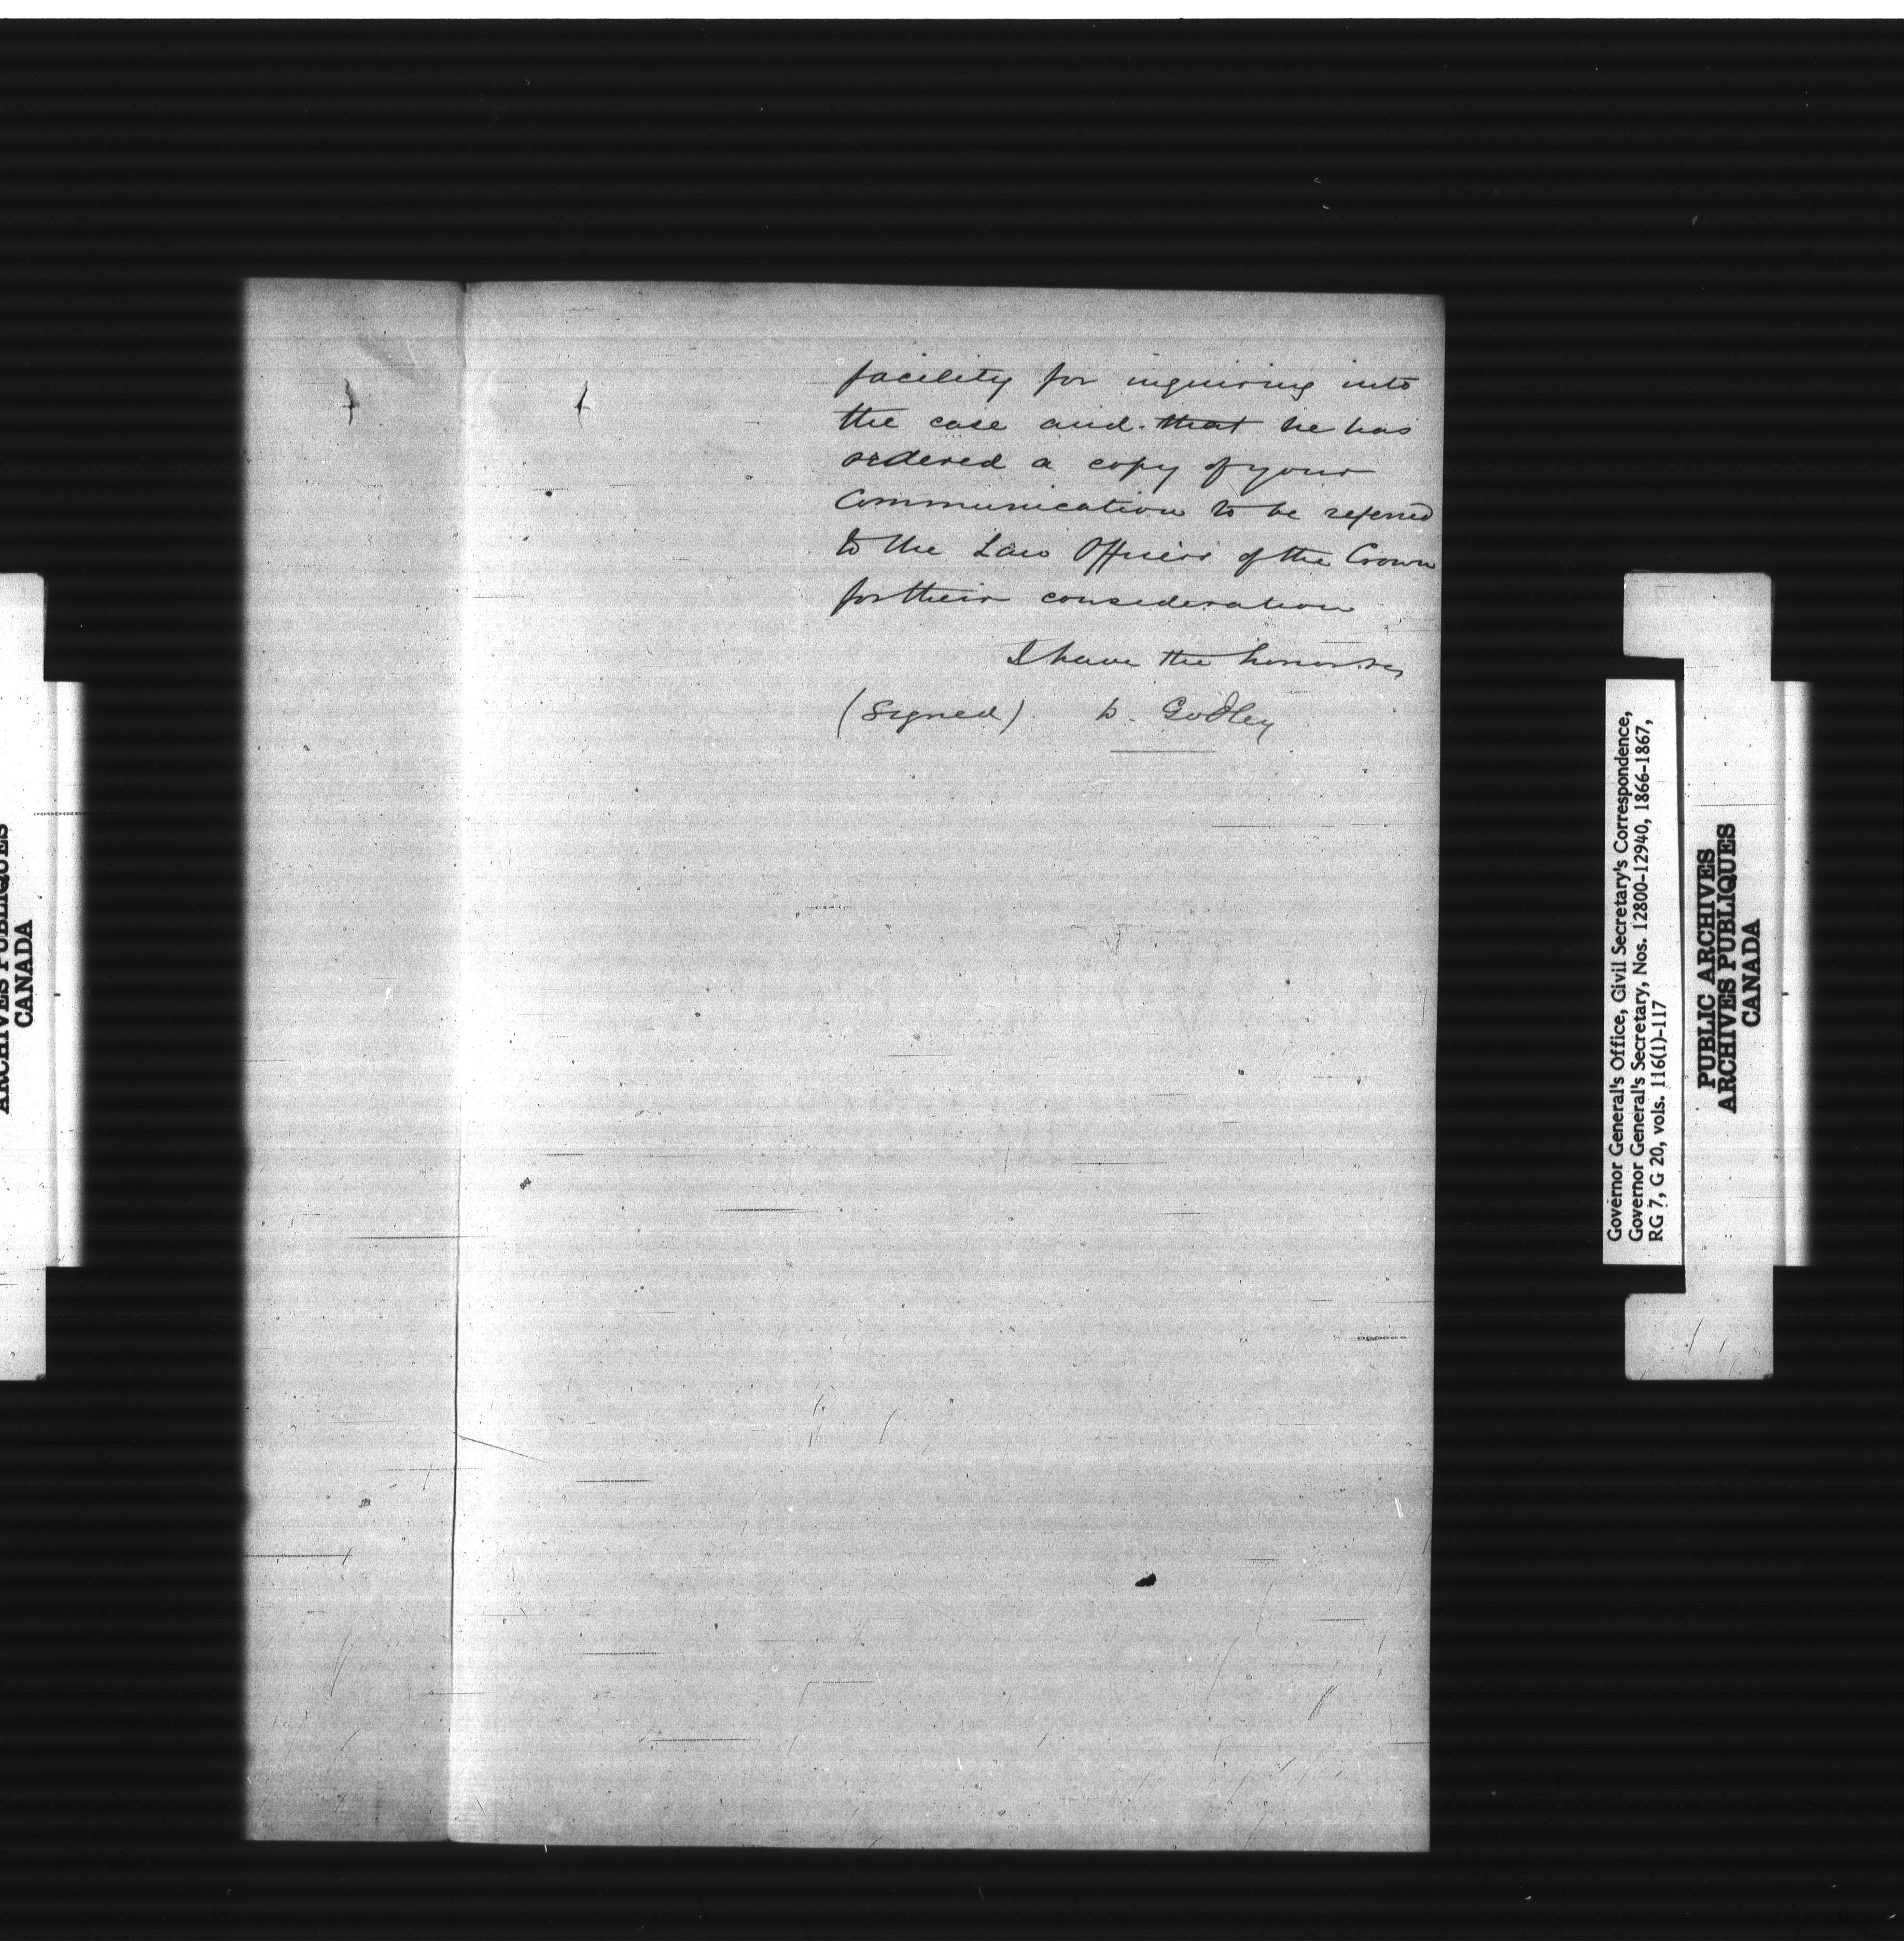 facility for inquiring into
the case and that he has
ordered a copy of your
Communication to be referred
to the Law Officers of the Crown
for their consideration
I have the honor
(Signed) D. Godley
Governor General's Office, Civil Secretary's Correspondence,
Governor General's Secretary, Nos. 12800-12940, 1866-1867,
RG 7, G 20, vols. 116(1)-117
PUBLIC ARCHIVES
ARCHIVES PUBLIQUES
CANADA
ARCHIVES PUBLIQUES
CANADA